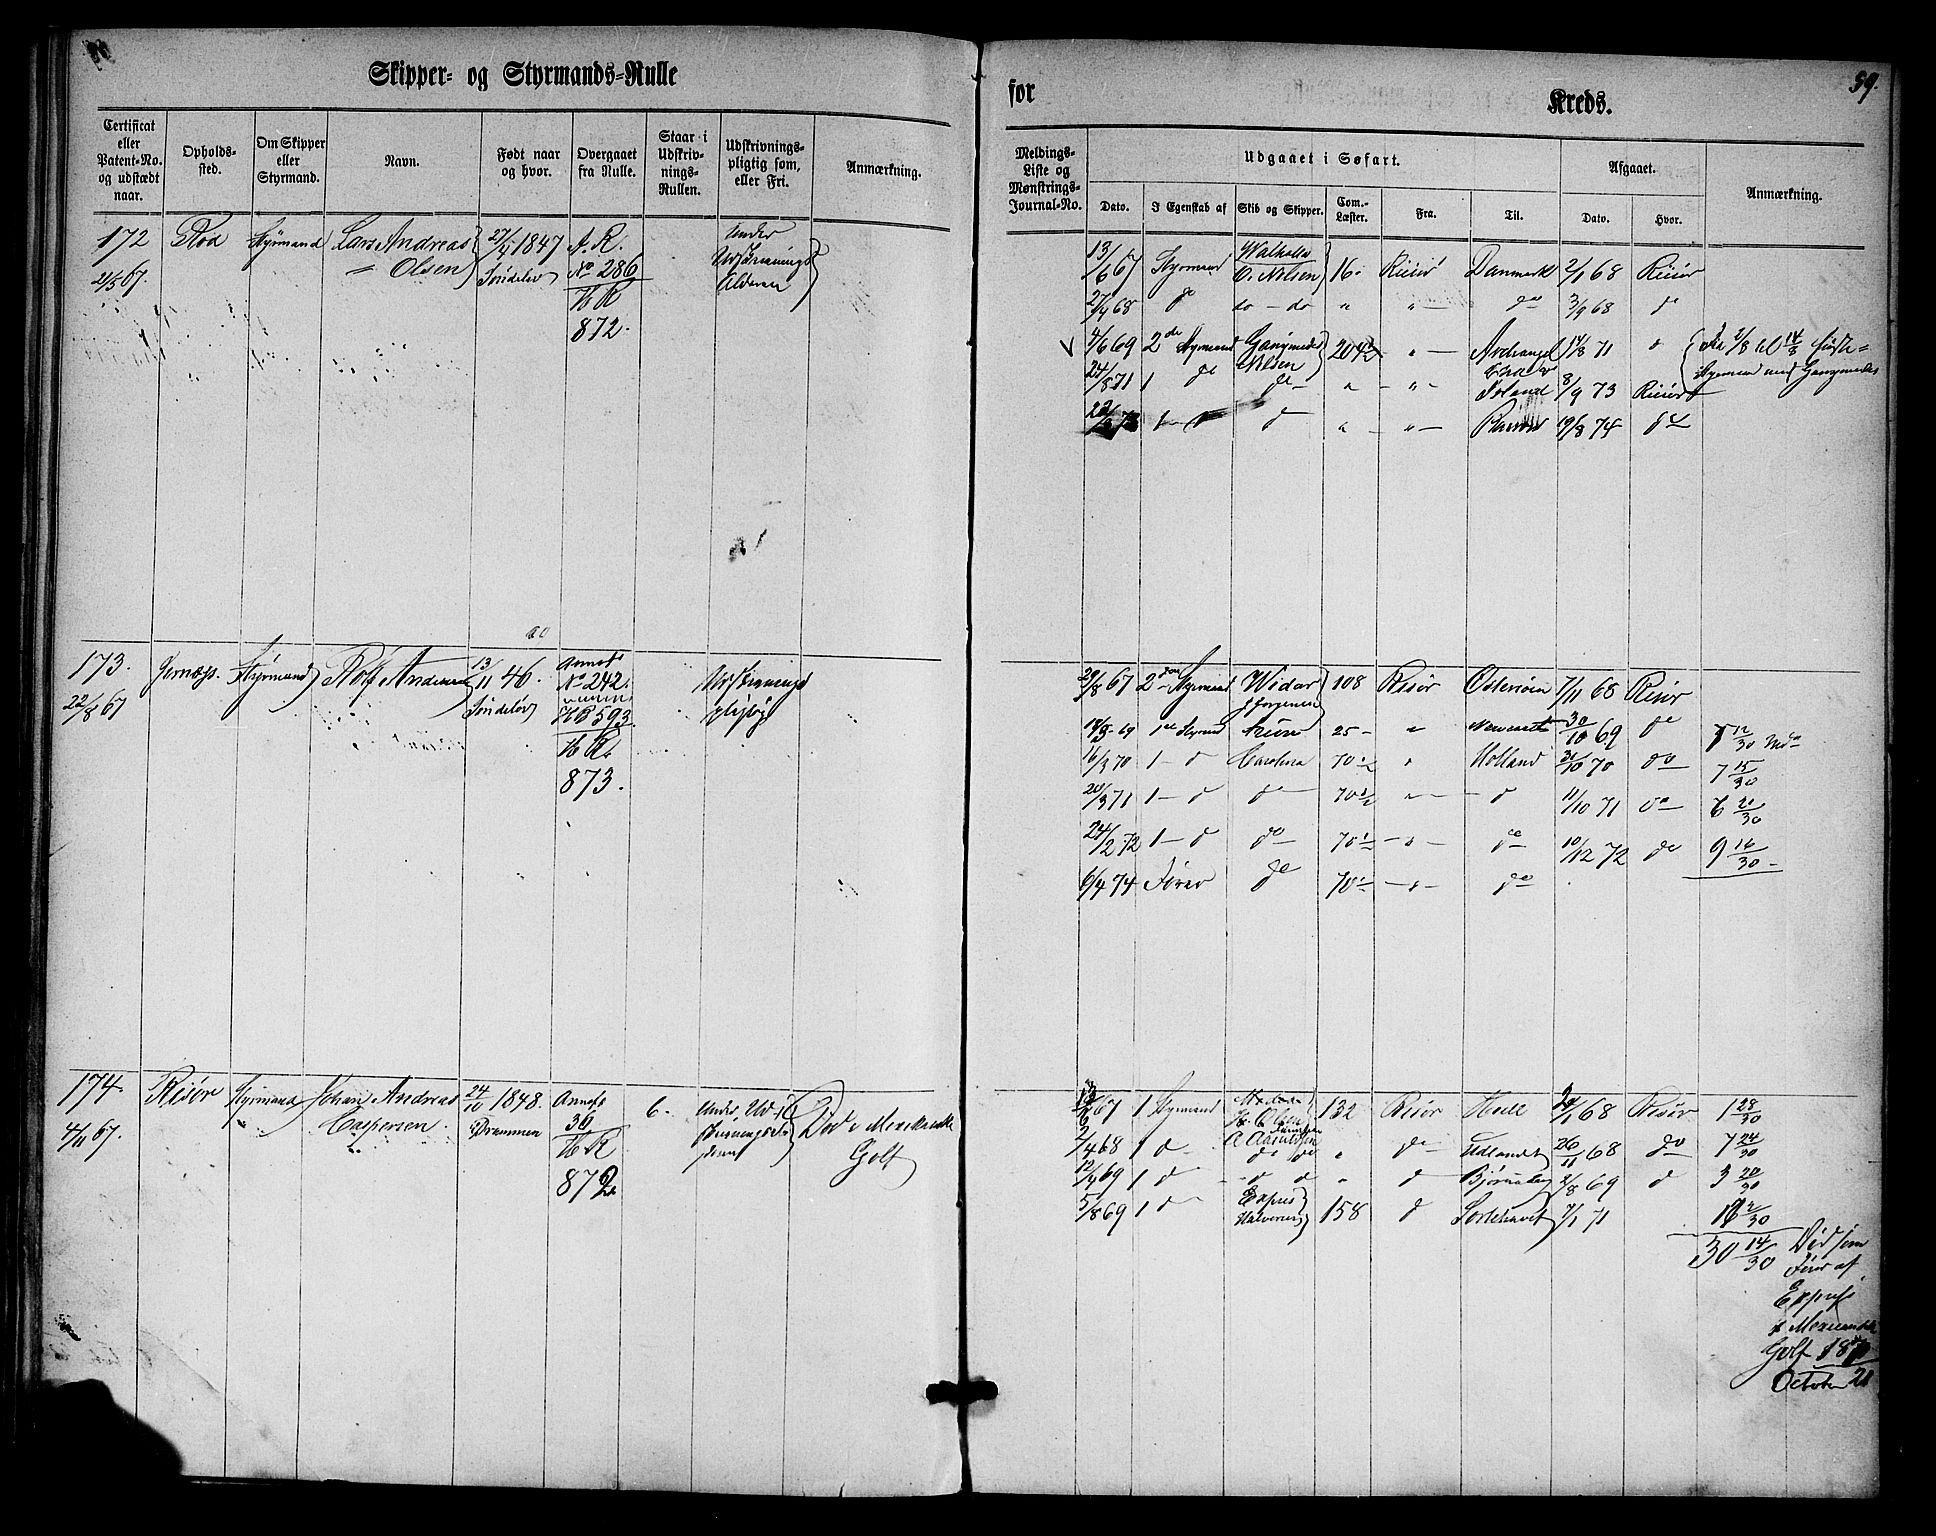 Skipper- og Styrmands-Rulle
for
Kreds.
59.
Certificat eller Patent-No. og udstædt naar.
Opholds-sted.
Om Skipper eller Styrmand.
Navn.
Født naar og hvor.
Overgaaet fra Rulle.
Staar i Udskriv-nings-Rullen.
Udskrivnings-pligtig som, eller Fri.
Anmærkning.
Meldings-Liste og Mønstrings-Journal-No.
Udgaaet i Søfart.
Dato.
I Egenskab af
Skib og Skipper.
Com.-Læster.
Fra.
Til.
Afgaaet.
Dato.
Hvor.
Anmærkning.
172
21/5 67.
Rød
Styrmand
Lars Andreas
Olsen
27/4 1847
Søndeløv
A. R.
No 286
H R
872.
Under
Udskrivnings
Alderen
13/6 67 Styrmand Walhalla O. Nilsen 16 - Riisør Danmark 2/1 68 Riisør
27/4 68 do do - do " " do 3/9 68 do
4/6 69 2de Styrmand Ganymedes Nilsen " Archangel 14/8 71
24/8 71 1 do do " " Island 8/9 73 Riisør
1 - d d " " 19/8 74 do
173.
22/8 67
Styrmand
Rolf Andersen
13/11 46.
Søndeløv
Annots
No 242.
HB 593
H R.
873.
Udskrivnings
pligtig
29/8 67 2den Styrmand Widar Jørgensen 108 Risør Østersøen 7/1 68 Risør
18/3 69 1ste Styrmd 25 - " Newcastle 30/10 69 do
16/3 70 1 - d Carolina 70 1/2 " Holland 31/10 70 do 7 15/30
20/3 71 1 - d do 70 1/2 " - d 11/10 71 do 6 21/30
24/2 72 1 - d do 70 1/2 - " - do 10/12 72 do 9 16/30
6/4 74 Fører do 70 1/2 - " - do
174.
4/11 67.
Risøer
Styrmand
Johan Andreas
Caspersen.
24/10 1848.
Drammen
Annots
36
H R
872
6.
Under Ud-
skrivnings
Død i Mexikanske
Golf
67 1 Styrmand 132 Risør Hull 24/1 68 Risør 1 28/30
2/4 68 1 d - A Aanundsen do do " do Udlandet 26/11 68 do 7 24/30
12/4 69 1 d - d d " d Bjørneborg 2/8 69 d 3 20/30
5/8 69 1 d Expres Halvorsen 158 d 7/1 71 2/30
30 14/30
Død som
Fører af
Express
i Mexicanske
Golf 1871
October 21